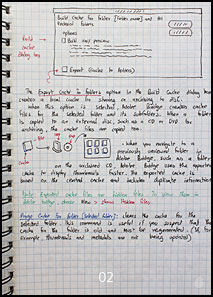 Build Cache for folder [Folder name] and the
Selected folders
options
Build
Cache
dialog
box
□ Build
□ Export Cache to folders
The Export Cache to folders option in the Build Cache dialog box
creates a local cache for sharing or archiving to disc.
When this option is selected, Adobe Bridge creates cache
files for the selected folder and its subfolders. When a folder
is copied to an external disc, such as a CD or DVD, for
archiving, the cache files are copied too.
- When you navigate to a
previously unviewed folder in
Adobe Bridge, such as a folder
on the archived CD, Adobe Bridge uses the exported
cache to display thumbnails faster. The exported cache is
based on the central cache and includes duplicate information.
Note: Exported cache files are hidden files. To view them in
Adobe Bridge, choose View > Show Hidden Files.
Purge Cache for folder [selected folder]: clears the cache for the
selected folder. This command is useful if you suspect that the
cache for the folder is old and must be regenerated. (If, for
example, thumbnails and metadata are not being updated)
02